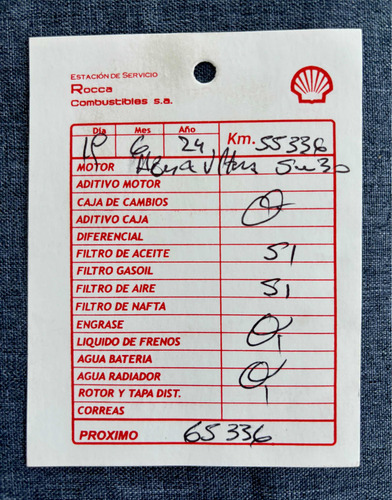 ESTACIÓN DE SERVICIO
ROCCA
COMBUSTIBLES S.A.
Día Mes Año
6 24 Km. 55336
MOTOR 5w30
ADITIVO MOTOR
CAJA DE CAMBIOS
ADITIVO CAJA
DIFERENCIAL
FILTRO DE ACEITE SI
FILTRO GASOIL
FILTRO DE AIRE SI
FILTRO DE NAFTA
ENGRASE
LIQUIDO DE FRENOS
AGUA BATERIA
AGUA RADIADOR
ROTOR Y TAPA DIST.
CORREAS
PROXIMO 65336